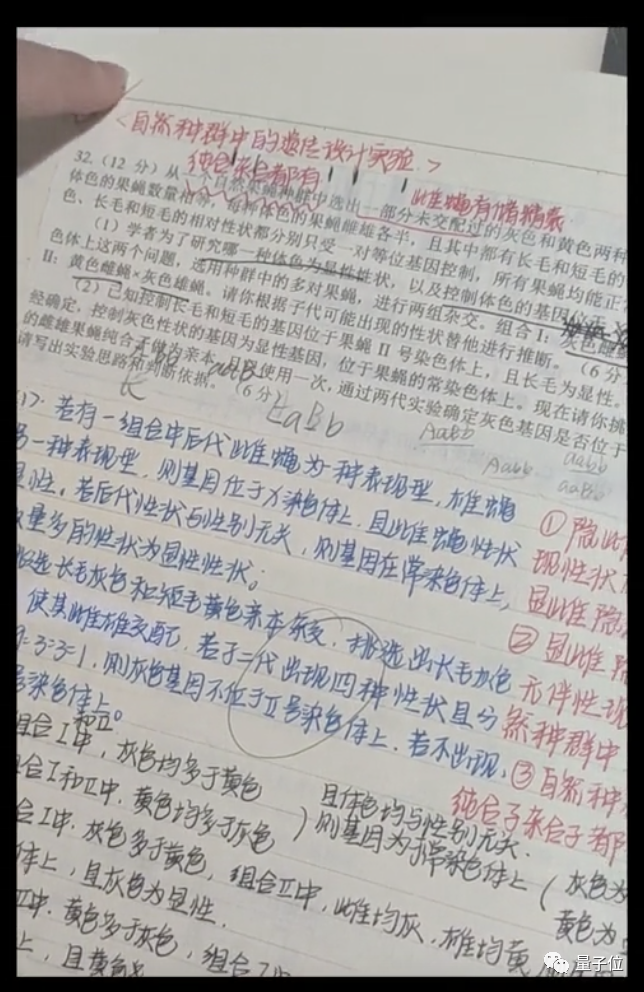 <自然种群中的遗传设计实验>
纯合杂合都有
此雌蝇有储精囊
32.(12 分)从一个自然果蝇种群中选出一部分未交配过的灰色和黄色两种
体色的果蝇数量相等,每种体色的果蝇雌雄各半,且其中都有长毛和短毛的
色、长毛和短毛的相对性状都分别只受一对等位基因控制,所有果蝇均能正
(1)学者为了研究哪一种体色为显性性状,以及控制体色的基因位于
色体上这两个问题,选用种群中的多对果蝇,进行两组杂交。组合 I:灰色雌蝇
II:黄色雌蝇×灰色雄蝇。请你根据子代可能出现的性状替他进行推断。(6 分
(2)已知控制长毛和短毛的基因位于果蝇 II 号染色体上,且长毛为显性。
经确定,控制灰色性状的基因为显性基因,位于果蝇的常染色体上。现在请你挑
的雌雄果蝇纯合子做为亲本,只使用一次,通过两代实验确定灰色基因是否位于
请写出实验思路和判断依据。(6 分)
AaBb
Aabb
aabb
Aabb
aaBb
(1)、若有一组合中后代雌蝇为一种表现型,雄蝇
另一种表现型,则基因位于X染色体上,且雌蝇性状
显性。若后代性状与性别无关,则基因在常染色体上,
数量多的性状为显性性状。
挑选长毛灰色和短毛黄色亲本杂交,挑选出长毛灰色
使其雌雄交配,若子二代出现四种性状且分
9:3:3:1,则灰色基因不位于II号染色体上,若不出现,
号染色体上。
①隐雌
现性状
显雌隐
②显雌
无伴性现
然种群中
③自然种
纯合子杂合子都
组合I和II中,灰色均多于黄色
组合I和II中,黄色均多于灰色
且体色均与性别无关,
则基因为于常染色体上
(灰色为
黄色为
合I中,灰色多于黄色,组合II中,雌均灰,雄均黄
体上,且灰色为显性.
II中,黄色多于灰色,组合I中
上,且黄色
量子位